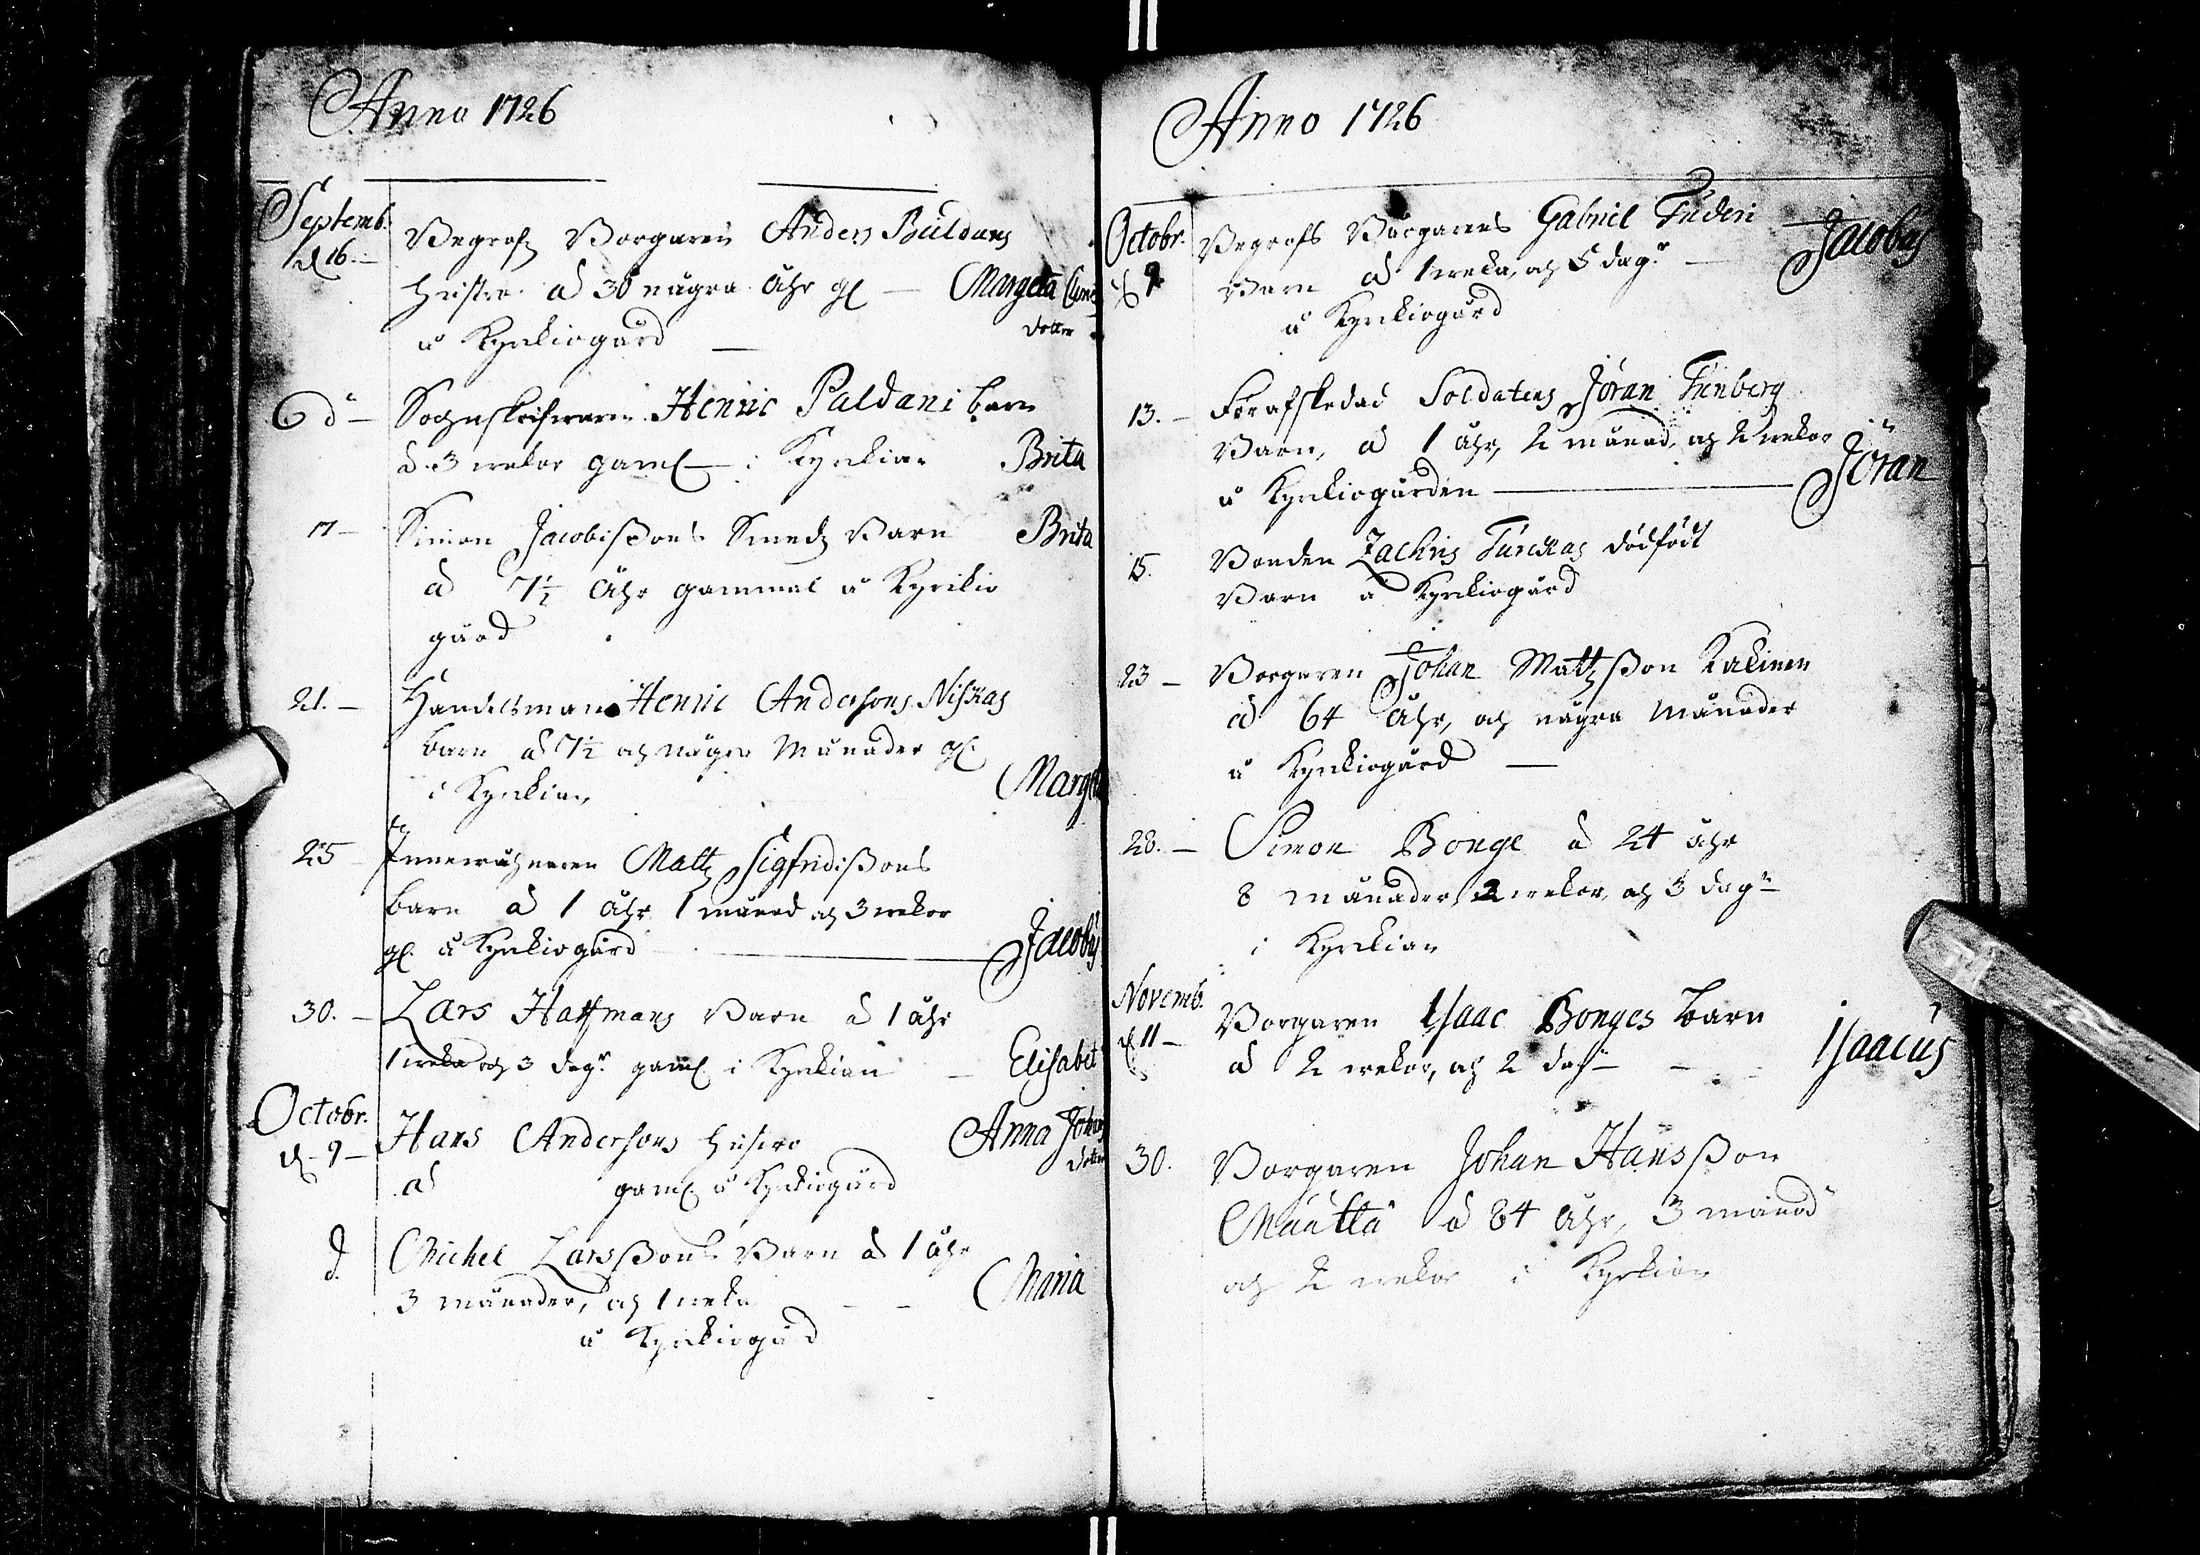 Anno 1726
Septemb.
d 16. Begrofz Borgaren Anders Buldans
hustro ad 30 några åhr gl — Margeta
dotter
å Kyrkiogård —
Sochnskrifwaren Henric Paldani barn
ad 3 wekor gaml — i Kyrkian Brita
17 — Simon Jacobißons Smedz Barn Brita
ad 7½ åhr gammal å Kyrkio
gård
21. — Handelsman Henric Andersons Niskas
barn ad 7½ och någre Månader gl.
i Kyrkian Marget
25 Innerwåhnaren Matz Sigfridißons
barn ad 1 åhr 1 månad och 3 wekor
gl. å Kyrkiogård — Jacobus
30. — Lars Hattmans Barn ad 1 åhr
1 weka och 3 dagr gaml i Kyrkian — Elisabet
Octobr.
d. 9 — Hans Andersons hustro Anna Johans
dotter
ad gaml å Kyrkiogård
d. Michel Larsßons Barn ad 1 åhr
3 månader, och 1 weka — — Maria
å Kyrkiogård
Anno 1726
Octobr.
d 9 Begrofs Borgarens Gabriel Tuderi Jacobus
Barn ad 1 weka, och 5 dagr —
å Kyrkiogård
13. — Förafskedad Soldatens Jöran Tenberg
Barn, ad 1 åhr, 2 månad, och 2 wekor
å Kyrkiogården — Jöran
15. Bonden Zachris Turckas dödfödt
Barn å Kyrkiogård
23 — Borgaren Johan Matzßon Kakinen
ad 64 åhr, och några Månader
å Kyrkiogård —
28. — Simon Bonge ad 24 åhr
8 månader, 2 wekor, och 3 dagr
i Kyrkian
Novemb.
d 11 — Borgaren Isaac Bonges barn
ad 2 wekor, och 2 dagr — — Isaacus
30. Borgaren Johan Hansßon
Mautta ad 84 åhr, 3 månad
och 2 wekor i Kyrkian